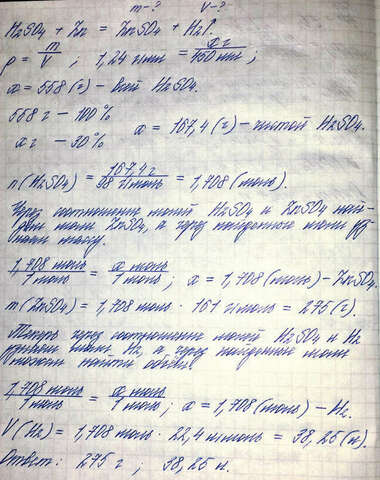 m-? V-?
H₂SO₄ + Zn = ZnSO₄ + H₂↑.
ρ = m/V ; 1,24 г/мл = x г/450 мл ;
x = 558 (г) - всей H₂SO₄.
558 г - 100%
x г - 30% x = 167,4 (г) - чистой H₂SO₄.
n(H₂SO₄) = 167,4 г/98 г/моль = 1,708 (моль).
Через соотношение молей H₂SO₄ и ZnSO₄
моли ZnSO₄, а через найденные моли
массу.
1,708 моль/1 моль = x моль/1 моль ; x = 1,708 (моль) - ZnSO₄.
m(ZnSO₄) = 1,708 моль · 161 г/моль = 275 (г).
Теперь через соотношение молей H₂SO₄ и H₂
моли H₂, а через найденные моли
можем найти объём.
1,708 моль/1 моль = x моль/1 моль ; x = 1,708 (моль) - H₂.
V(H₂) = 1,708 моль · 22,4 л/моль = 38,25 (л).
Ответ: 275 г ; 38,25 л.